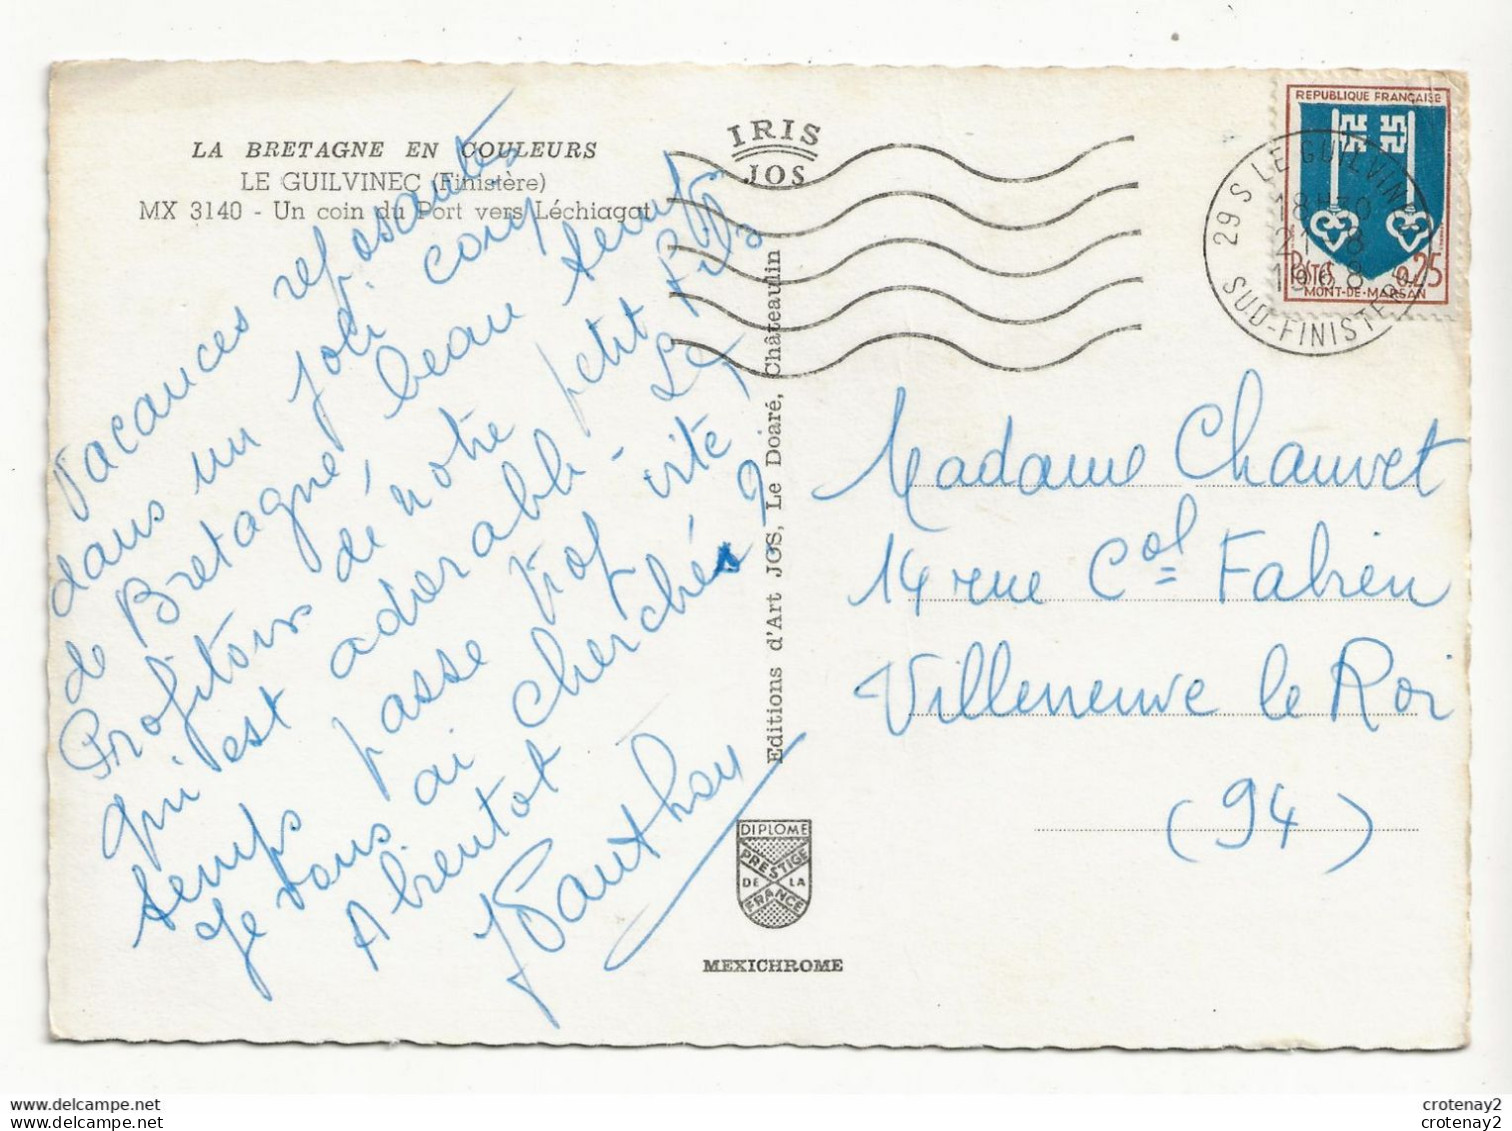 LA BRETAGNE EN COULEURS
LE GUILVINEC (Finistère)
MX 3140 - Un coin du Port vers Léchiagat
IRIS
JOS
REPUBLIQUE FRANÇAISE
POSTES 0,25
MONT-DE-MARSAN
29 S LE GUILVINEC
18H30
21-8
1968
SUD-FINISTERE
Vacances reposantes
dans un joli coin
de Bretagne, beau temps
Profitons de notre petit fils
qui est adorable - Le
temps passe trop vite !
Je vous ai cherchés ?
A bientot
Editions d'Art JOS, Le Doaré, Châteaulin
Madame Chauvet
14 rue Col Fabien
Villeneuve le Roi
(94)
DIPLOME
PRESTIGE
DE LA
FRANCE
MEXICHROME
crotenay2
crotenay2
crotenay2
crotenay2